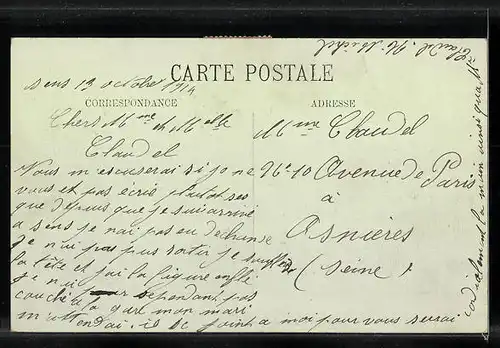 CARTE POSTALE
CORRESPONDANCE
ADRESSE
Sens 13 octobre 1914
Chers Mme et Melle
Claudel
Vous m escuserai si je ne
vous et pas écris plutot ses
que depuis que je suis arrivé
a sens je n'ai pas eu de chanse
je n'ai pas pus sortir je souffler
la tête et j'ai la figure enflé
je n'ai pas
couché a la gare mon mari
il se joint a moi pour vous serai
cordialement la main ainsi qua Mr
Claudel
Mme Claudel
96-10 Avenue de Paris
à
Asnières
(Seine)